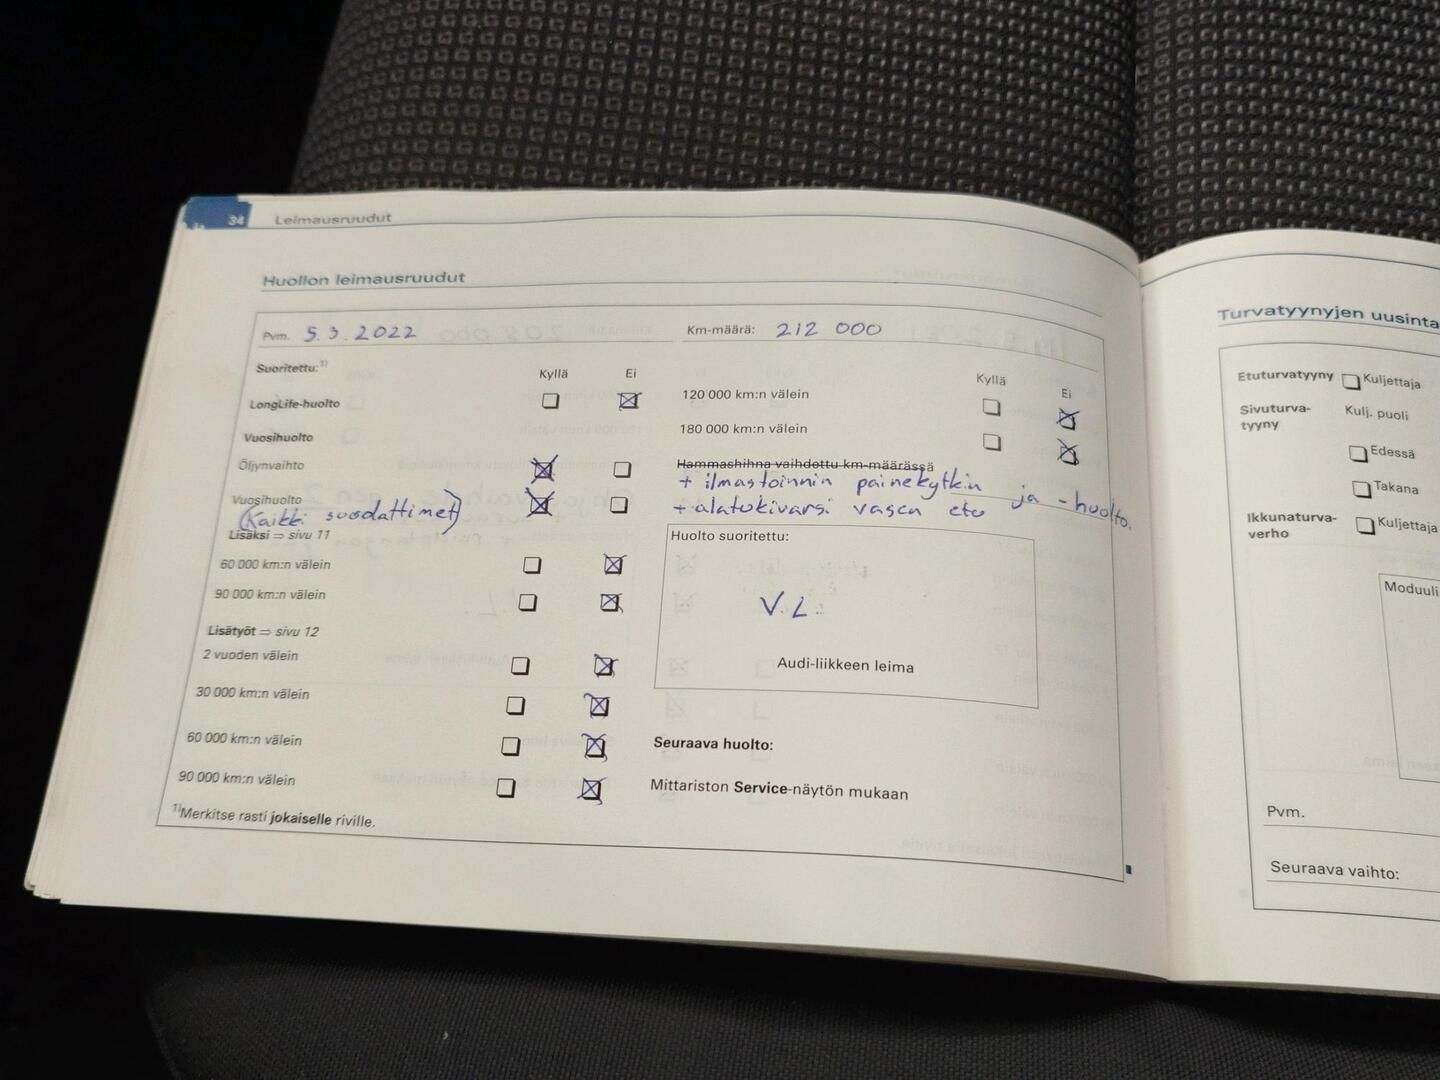 34 Leimausruudut
Huollon leimausruudut
Pvm. 5.3.2022 Km-määrä: 212 000
Suoritettu:1)
Kyllä Ei
LongLife-huolto
Vuosihuolto
Öljynvaihto
Vuosihuolto
(Kaikki suodattimet)
Lisäksi ⇒ sivu 11
60 000 km:n välein
90 000 km:n välein
Lisätyöt ⇒ sivu 12
2 vuoden välein
30 000 km:n välein
60 000 km:n välein
90 000 km:n välein
1)Merkitse rasti jokaiselle riville.
Kyllä Ei
120 000 km:n välein
180 000 km:n välein
Hammashihna vaihdettu km-määrässä
+ ilmastoinnin painekytkin ja -huolto.
+ alatukivarsi vasen etu
Huolto suoritettu:
V.L.
Audi-liikkeen leima
Seuraava huolto:
Mittariston Service-näytön mukaan
Turvatyynyjen uusinta
Etuturvatyyny Kuljettaja
Sivuturva-
tyyny
Kulj. puoli
Edessä
Takana
Ikkunaturva-
verho
Kuljettaja
Moduuli
Pvm.
Seuraava vaihto: